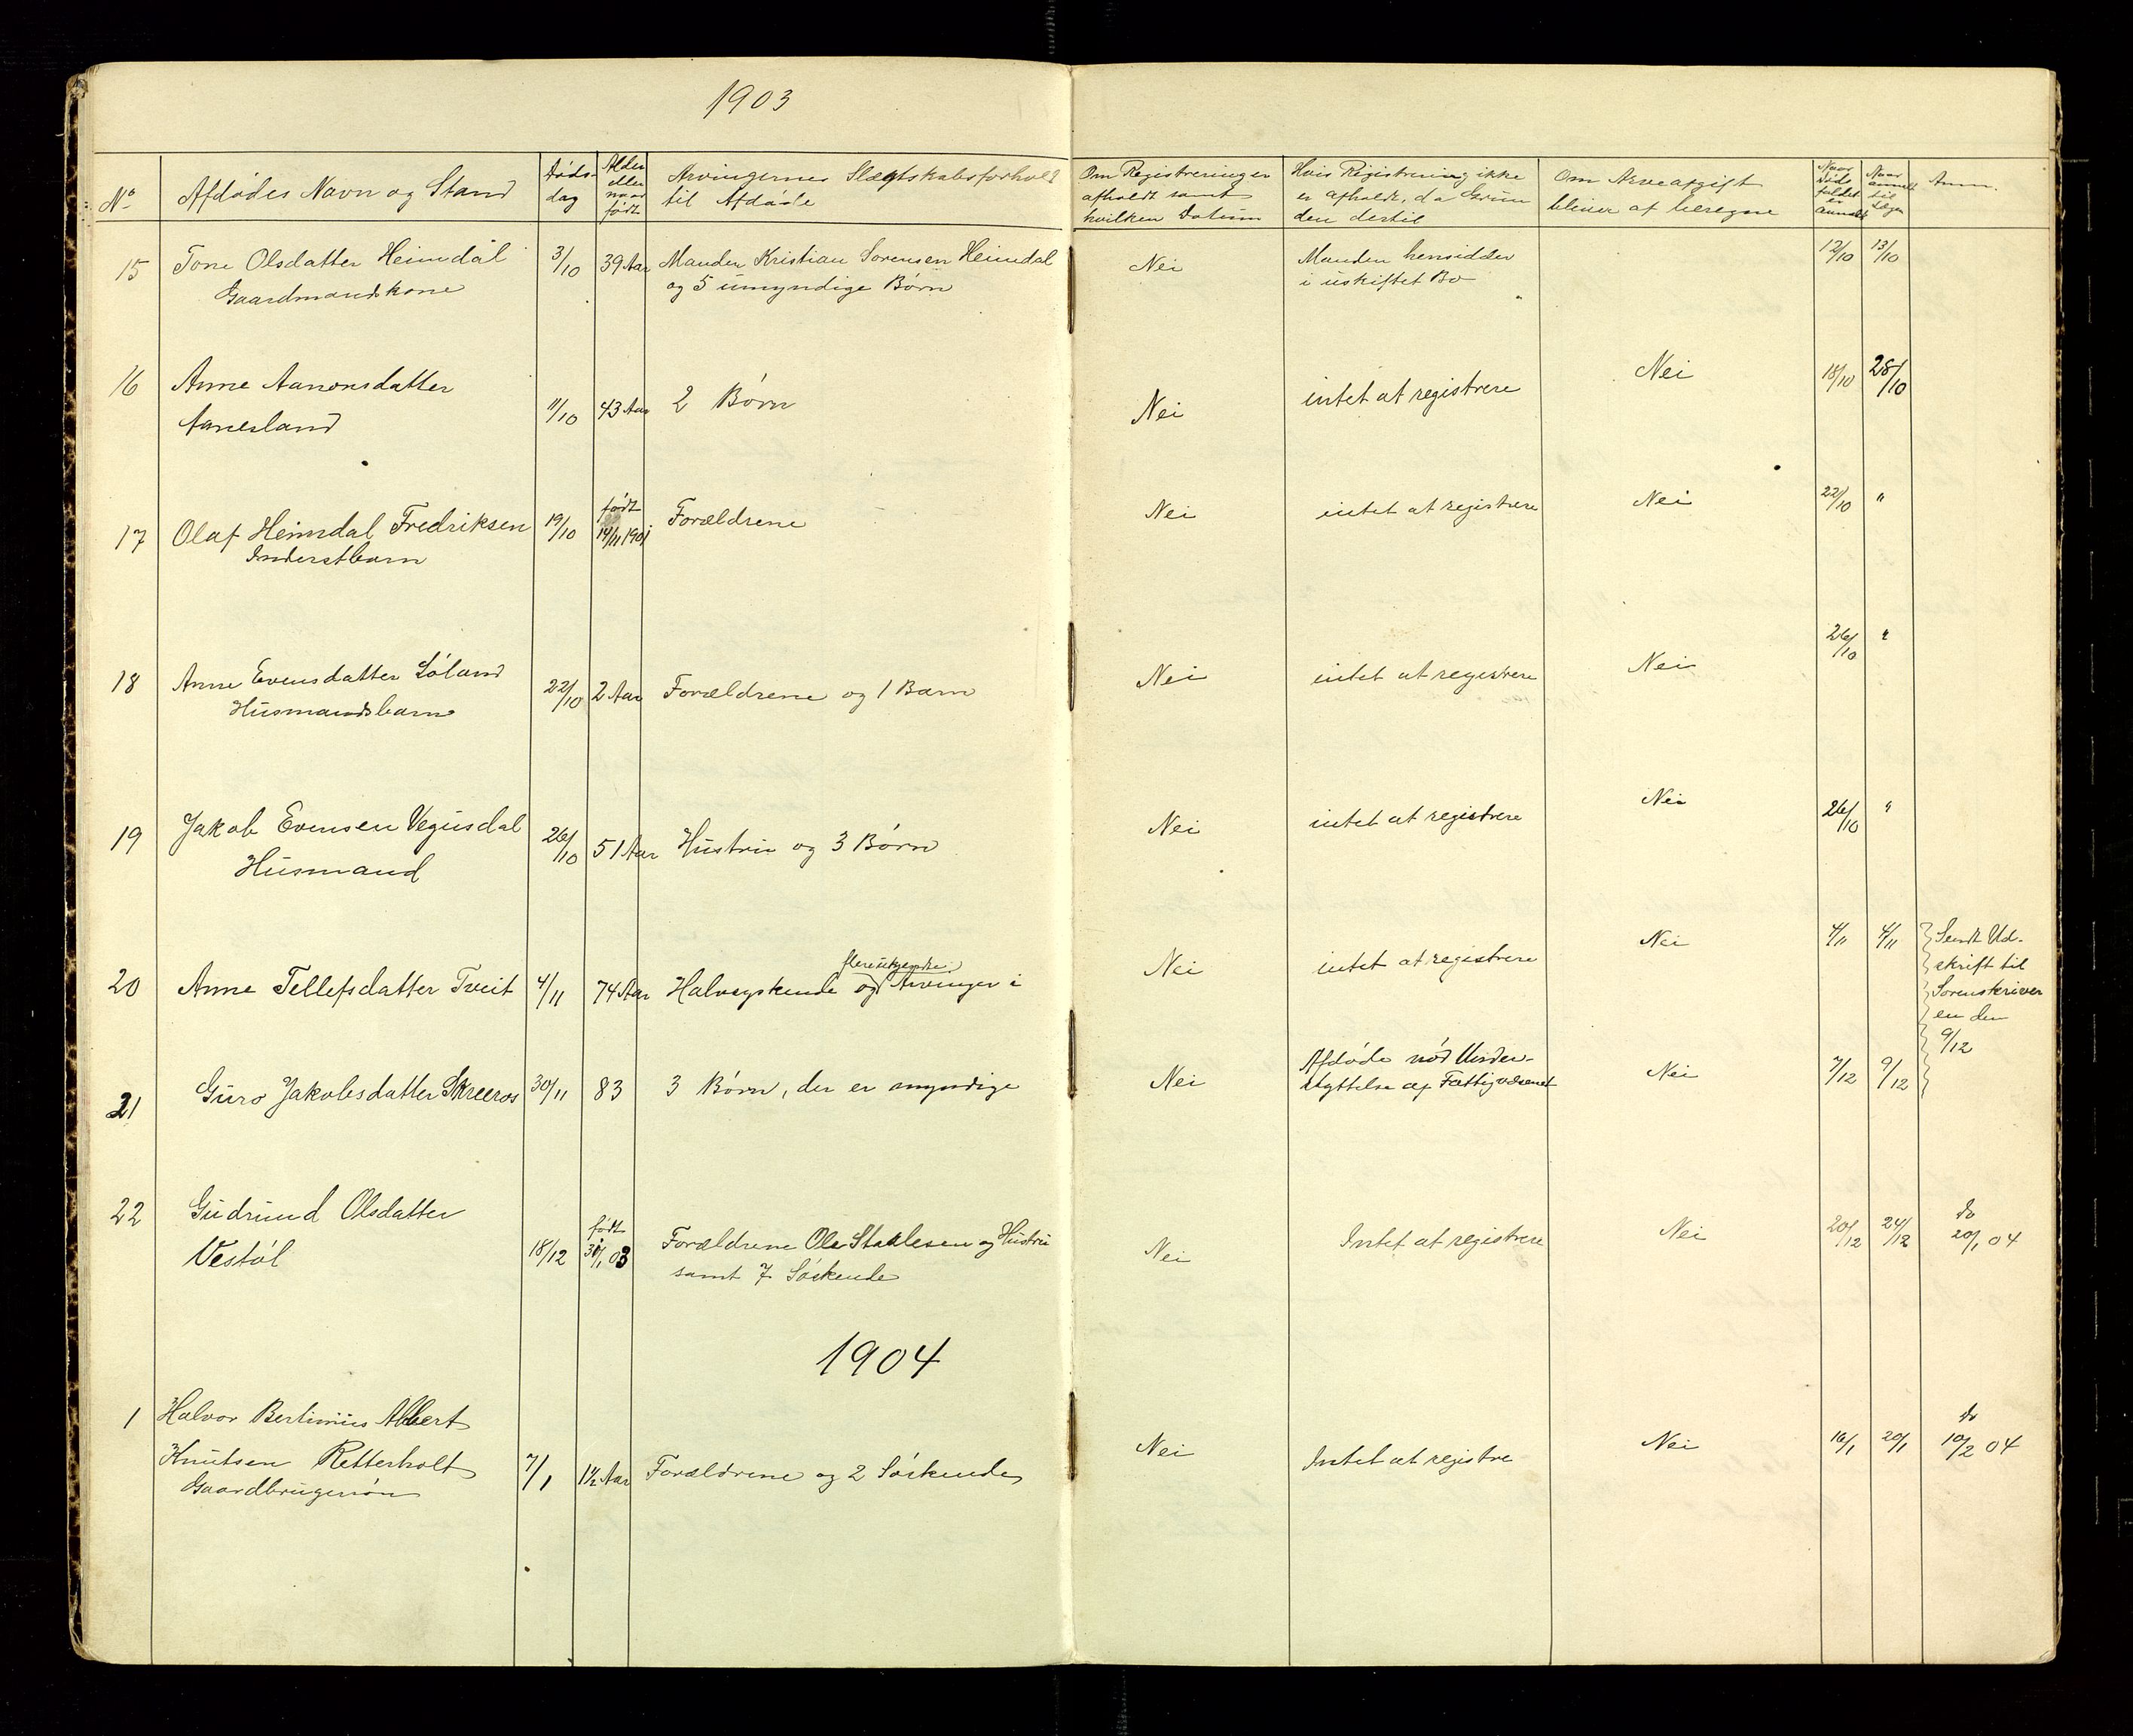 1903
No
Afdødes Navn og Stand
Døds-
dag
Alder
eller
naar
født
Arvingernes Slægtskabsforhold
til Afdøde
Om Registreringen er
afholdt samt
hvilken Datum
Hvis Registrering ikke
er afholdt, da Grun
den dertil
Om Arveafgift
bliver at beregne
Naar
Døds
faldet
er
anmeldt
Naar
anmeldt
til
Anm.
15
Tone Olsdatter Heimdal
Gaardmandskone
3/10
39 Aar
Manden Kristian Sorensen Heimdal
og 5 umyndige Børn
Nei
Manden hensidder
i uskiftet Bo
12/10
13/10
16
Anne Aanonsdatter
Aanesland
11/10
43 Aar
2 Børn
Nei
intet at registrere
Nei
18/10
28/10
17
Olaf Heimdal Fredriksen
Inderstbarn
19/10
født
14/11 1901
Forældrene
Nei
intet at registrere
Nei
22/10
"
18
Anne Evensdatter Løland
Husmandsbarn
22/10
2 Aar
Forældrene og 1 Barn
Nei
intet at registrere
Nei
26/10
"
19
Jakob Evensen Vegusdal
Husmand
26/10
51 Aar
Hustru og 3 Børn
Nei
intet at registrere
Nei
26/10
"
20
Anne Tellefsdatter Tveit
4/11
74 Aar
Halvsyskende og Arvinger i
Nei
intet at registrere
Nei
4/11
4/11
Sendt Ud-
skrift til
Sorenskriver
en den
9/12
21
Guro Jakobsdatter Skreeros
30/11
83
3 Børn, der er myndige
Nei
Afdøde nød Under-
støttelse af Fattigvæsenet
Nei
7/12
9/12
22
Gudrund Olsdatter
Vestøl
18/12
født
31/1 03
Forældrene Ole Staalesen og Hustru
samt 7 Søskende
Nei
Intet at registrere
Nei
20/12
24/12
do
20/1 04
1904
1
Halvor Bertinius Albert
Knutsen Retterholt
Gaardbrugersøn
7/1
1½ Aar
Forældrene og 2 Søskende
Nei
Intet at registre
Nei
16/1
20/1
do
10/2 04